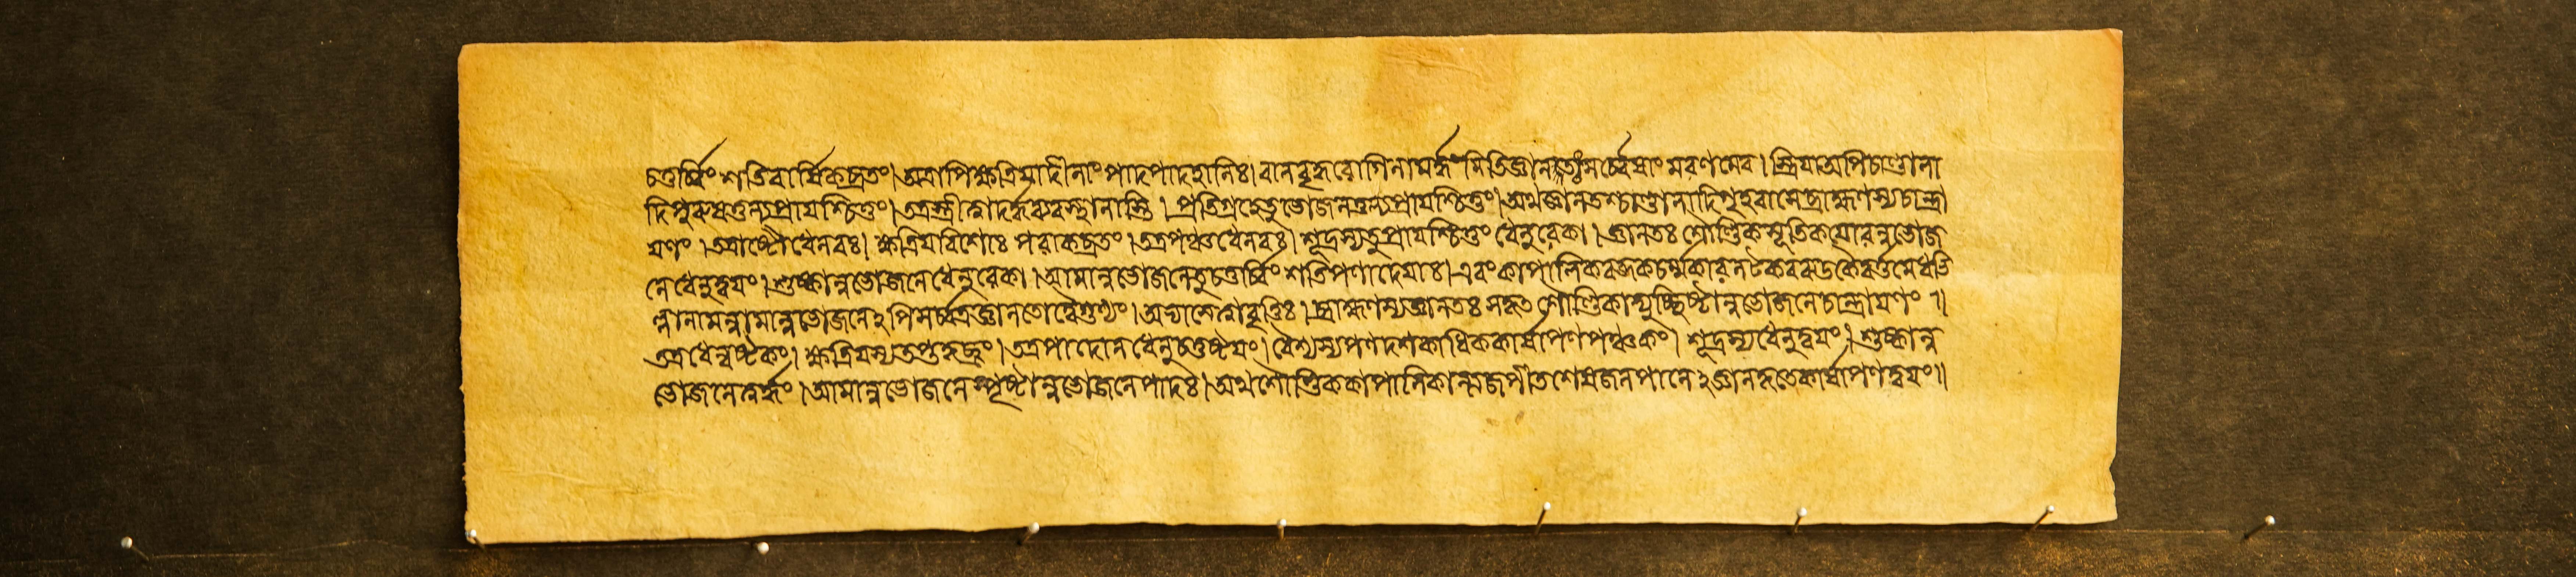 চতুর্ব্বিংশতিবার্ষিকব্রতং।অত্রাপিক্ষত্রিয়াদীনাং পাদপাদহানিঃ।বালবৃদ্ধরোগিনামর্দ্ধংমিতিজ্ঞানতস্তু সর্ব্বেষাং মরণমেব। স্ত্রিয়অপিচাণ্ডালা
দিপুরুষতুল্যপ্রায়শ্চিত্তং।তত্রস্ত্রীত্বাদর্দ্ধব্যবস্থানাস্তি।প্রতিগ্রহেতুভোজনতুল্যপ্রায়শ্চিত্তং।অথজ্ঞানতশ্চাণ্ডালাদিগৃহবাসেব্রাহ্মণস্যচান্দ্রা
য়ণং।তত্রাষ্টৌধেনবঃ।ক্ষত্রিয়বিশোঃ পরাকব্রতং।তত্রপঞ্চধেনবঃ।শূদ্রস্যতুপ্রায়শ্চিত্তং ধেনুরেকা।জ্ঞানতঃ শৌণ্ডিকসূতিকয়োরন্নভোজ
নেধেনুদ্বয়ং।শুষ্কান্নভোজনেধেনুরেকা।আমান্নভোজনেতুচতুর্ব্বিংশতিপণাদেয়াঃ।এবংকাপালিকরজকচর্ম্মকারনটকবরুড়কৈবর্ত্তমেদভি
ল্লানামন্নামান্নভোজনেঽপিসর্ব্বত্রজ্ঞানতোদ্বৈগুণ্যং।অভ্যাসেত্বাবৃত্তিঃ।ব্রাহ্মণস্যজ্ঞানতঃ সকৃত শৌণ্ডিকাদ্যুচ্ছিষ্টান্নভোজনেচান্দ্রায়ণং॥
তত্রধেন্বষ্টকং।ক্ষত্রিয়স্যতপ্তকৃচ্ছ্রং।তত্রপাদোনধেনুচতুষ্টয়ং।বৈশ্যস্যপণদশকাধিককার্ষাপণপঞ্চকং।শূদ্রস্যধেনুদ্বয়ং।শুষ্কান্ন
ভোজনেত্বর্দ্ধং।আমান্নভোজনেস্পৃষ্টান্নভোজনেপাদঃ।অথশৌণ্ডিককাপালিকান্ত্যজপীতশেষজলপানেঽজ্ঞানকৃতেকার্ষাপণদ্বয়ং॥